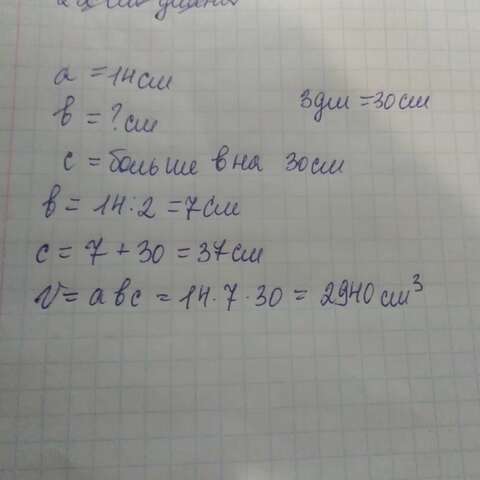 a = 14 см
3 дм = 30 см
в = ? см
c = больше в на 30 см
в = 14 : 2 = 7 см
c = 7 + 30 = 37 см
V = a в c = 14 · 7 · 30 = 2940 см³